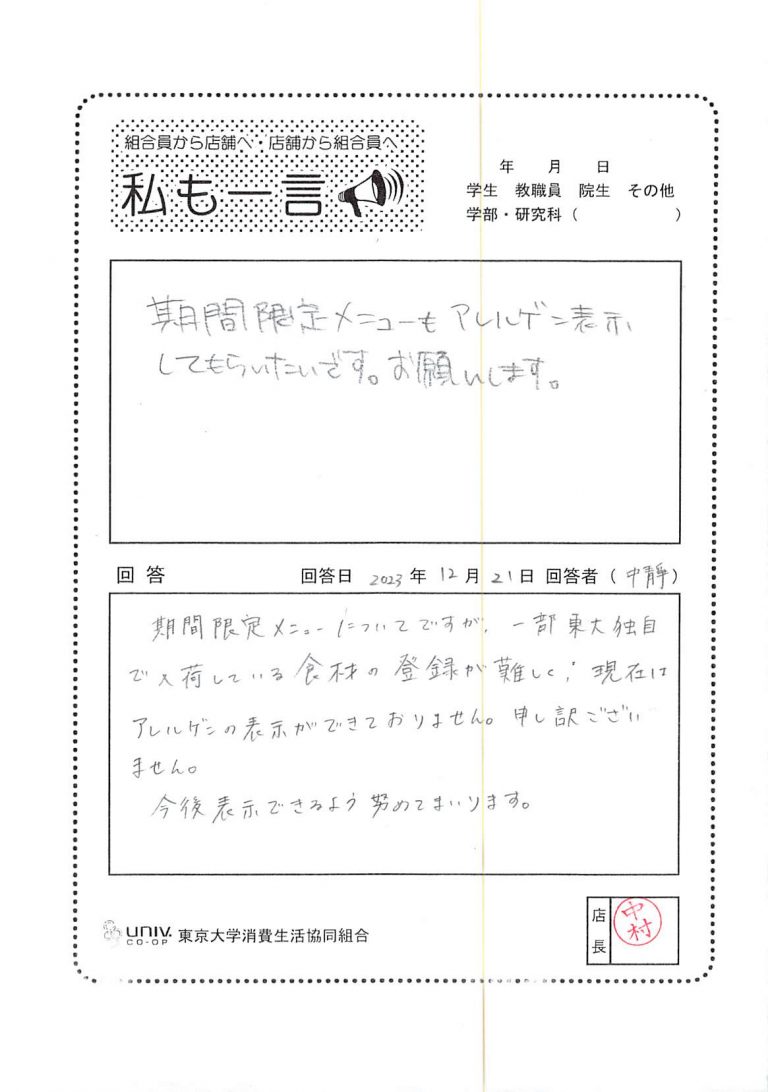 組合員から店舗へ・店舗から組合員へ
私も一言
年 月 日
学生 教職員 院生 その他
学部・研究科（ ）
期間限定メニューもアレルゲン表示
してもらいたいです。お願いします。
回答 回答日 2023年 12月 21日 回答者（中靜）
期間限定メニューについてですが、一部東大独自
で入荷している食材の登録が難しく、現在は
アレルゲンの表示ができておりません。申し訳ござい
ません。
今後表示できるよう努めてまいります。
UNIV. CO-OP 東京大学消費生活協同組合
店長 中村